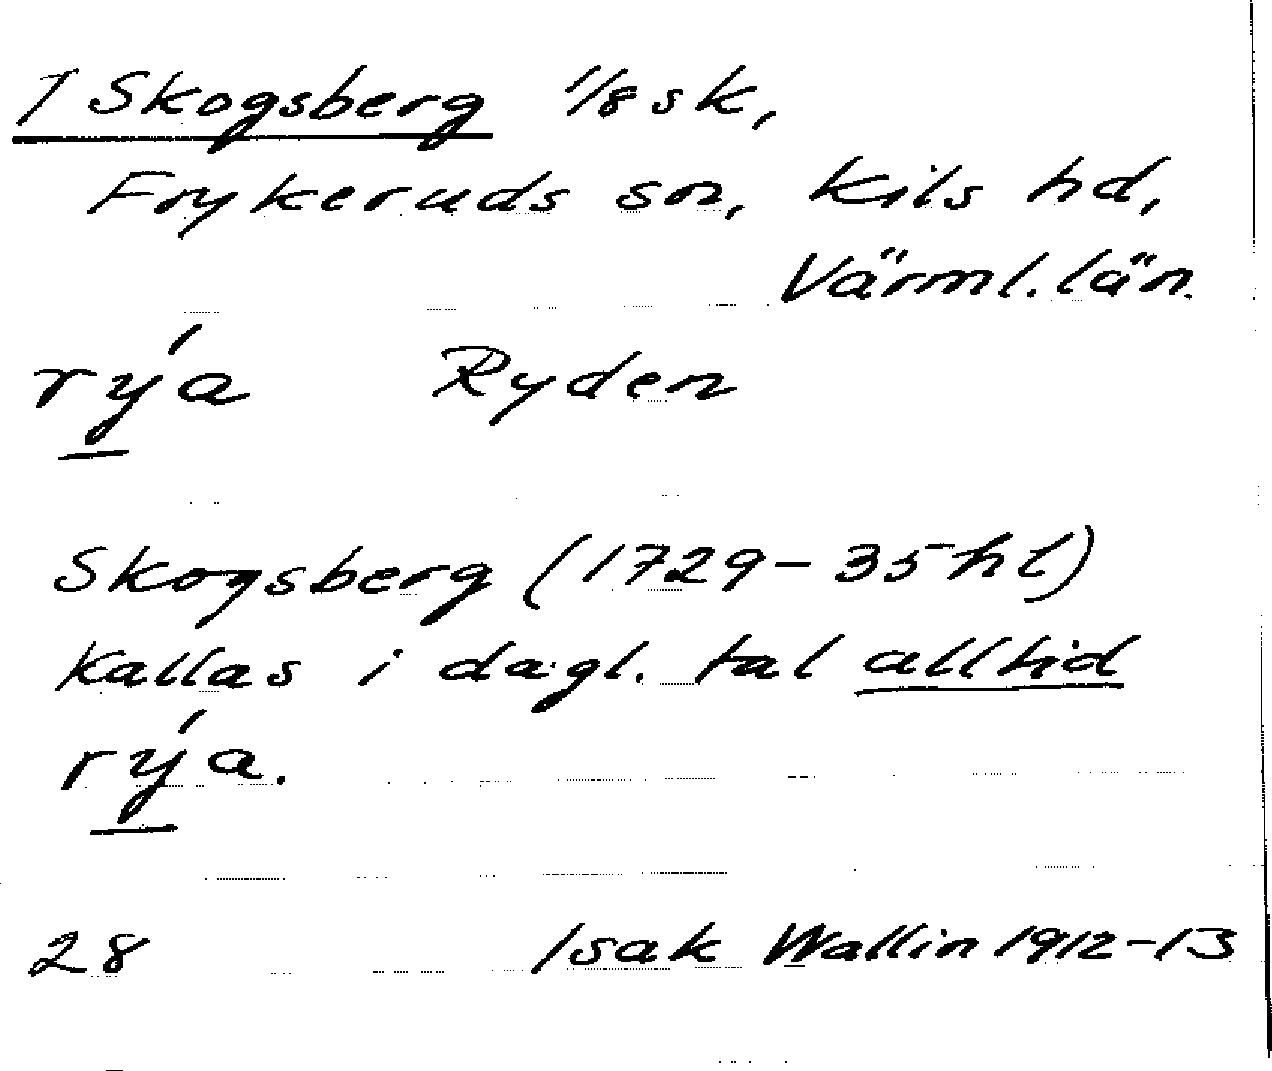 1 Skogsberg 1/8 sk,
Frykeruds sn, Kils hd,
Värml. län.
rýa Ryden
Skogsberg (1729-35 hl)
Kallas i dagl. tal alltid
rýa.
28 Isak Wallin 1912-13